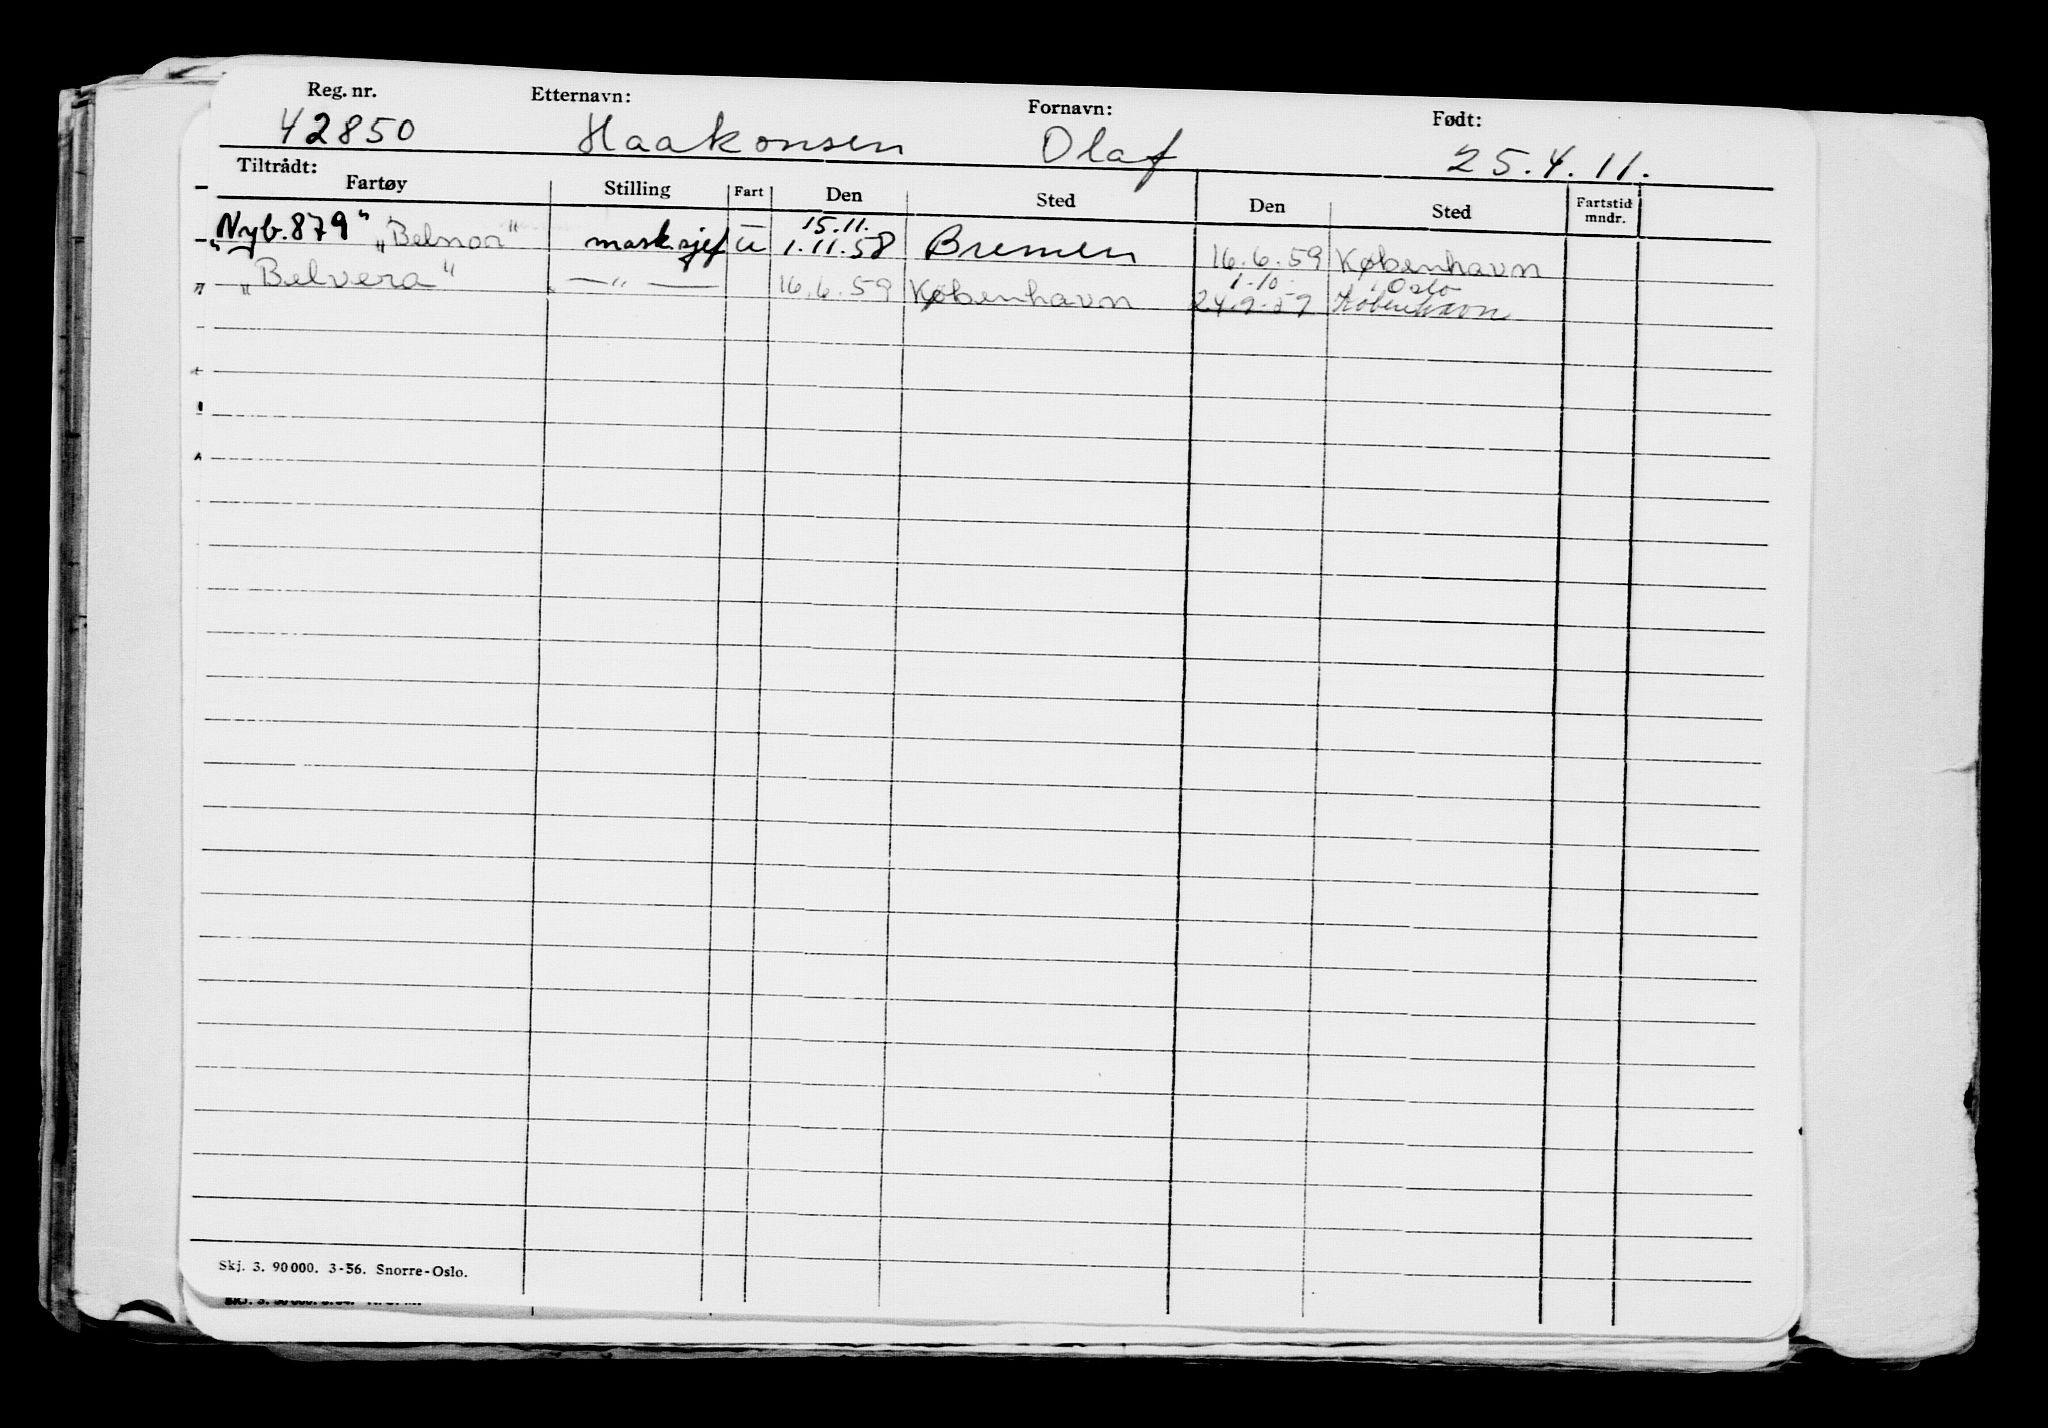 Reg. nr. Etternavn: Fornavn: Født:
42850 Haakonsen Olaf 25.4.11.
Tiltrådt:
Fartøy Stilling Fart Den Sted Den Sted Fartstid mndr.
15.11.
„Nyb. 879“ „Belnor“ mask.sjef u 1.11.58 Bremen 16.6.59 København
1.10. Oslo
„Belvera“ —„— 16.6.59 København 24.9.59 København
Skj. 3. 90 000. 3-56. Snorre-Oslo.